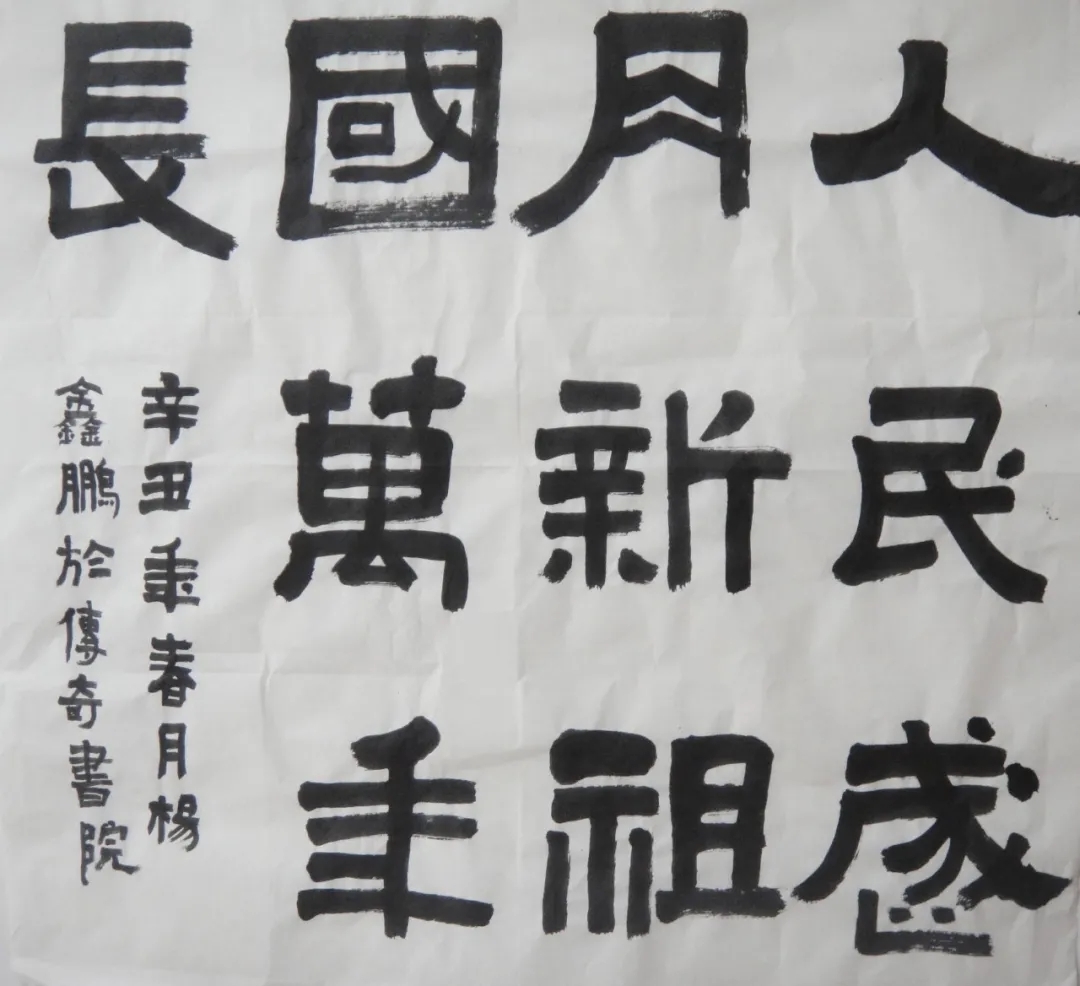 人民歲
月新祖
國萬年
長
辛丑年春月楊
鑫鵬於傳奇書院